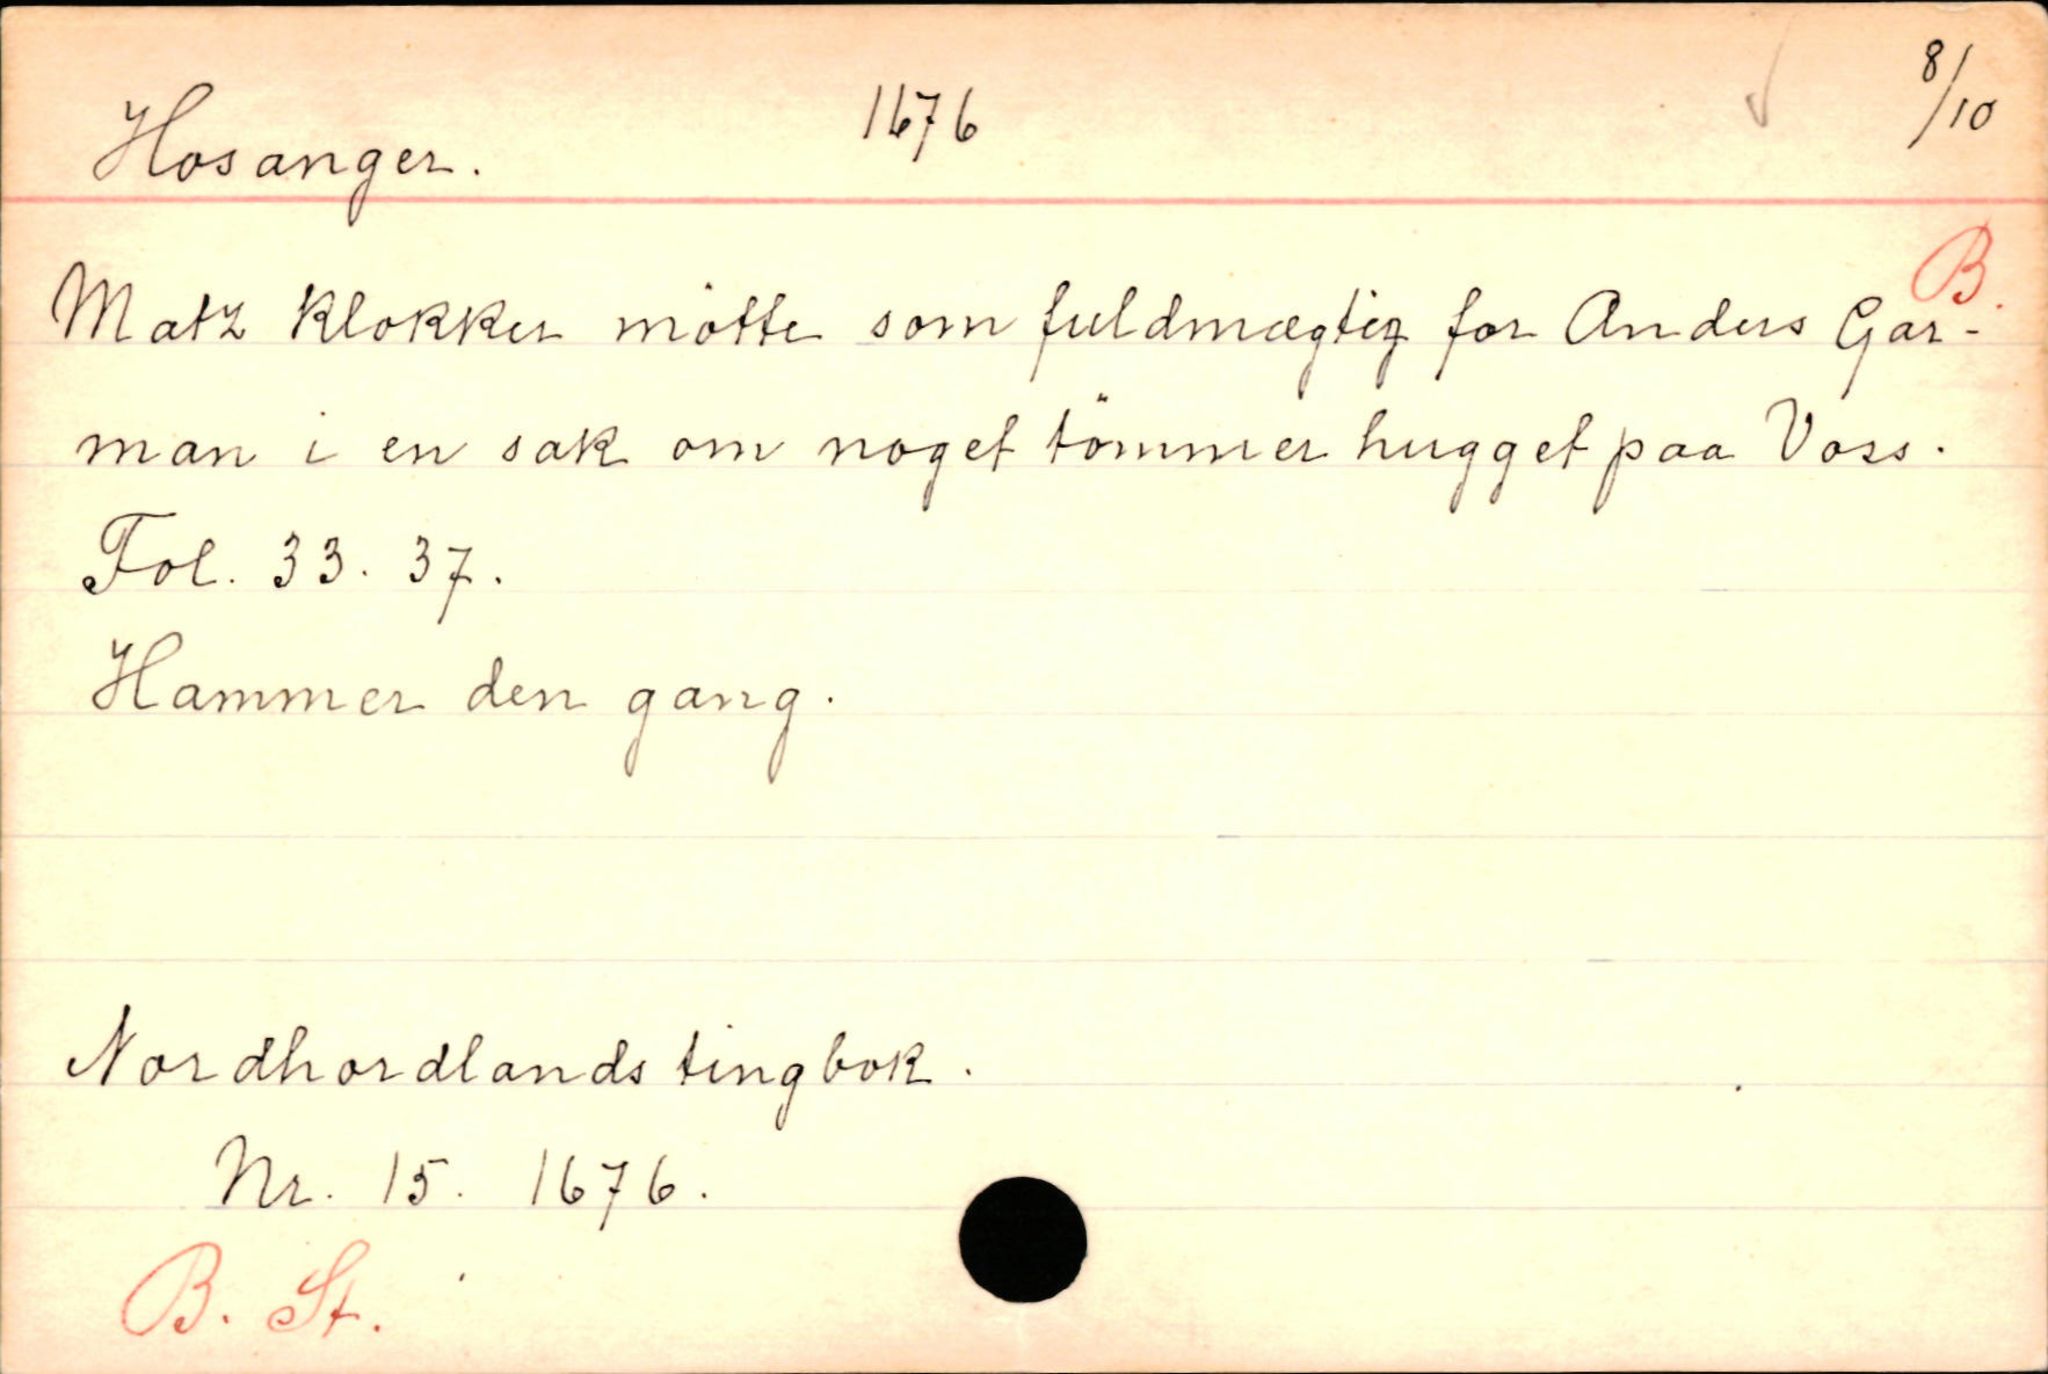 Hosanger. 1676 8/10
B.
Matz Klokker mötte som fuldmægtig for Anders Gar-
man i en sak om noget tömmer hugget paa Voss.
Fol. 33. 37.
Hammer den gang.
Nordhordlands tingbok.
Nr. 15. 1676.
B. St.